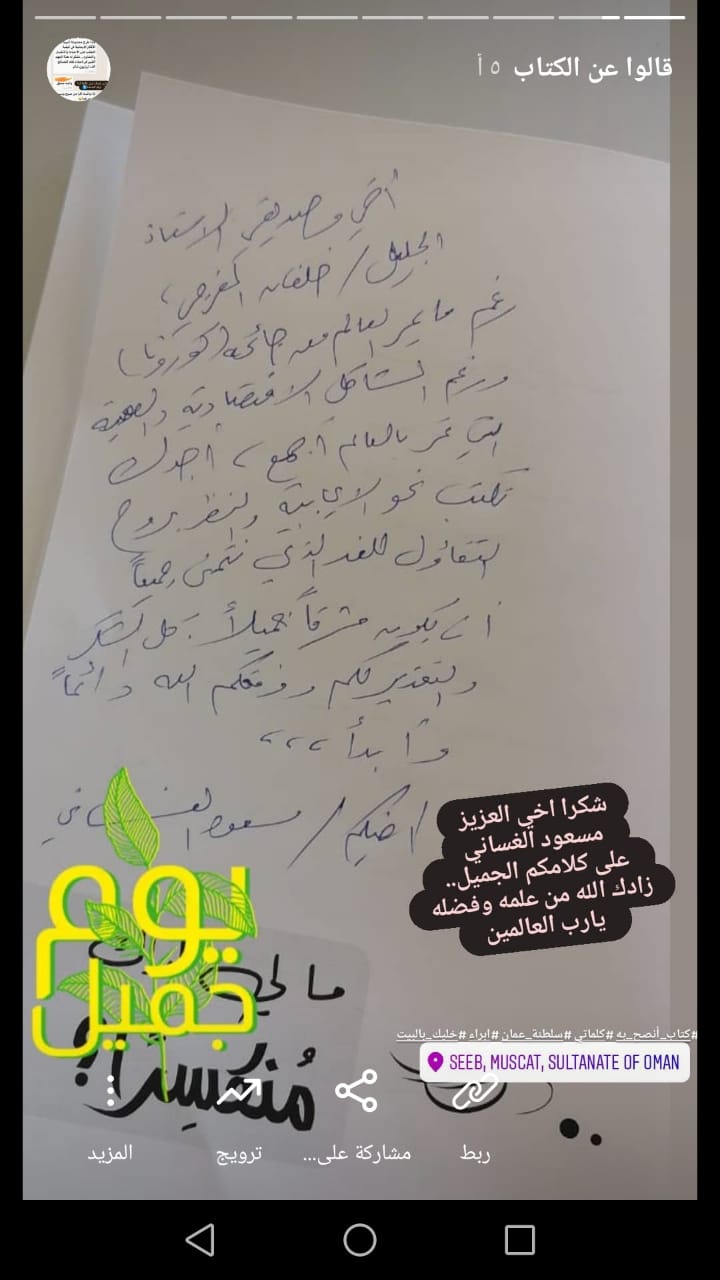 قالوا عن الكتاب ٥ أ
أخي وصديقي الاستاذ
الجليل / خلفان المفرجي،
رغم ما يمر العالم من جائحة (كورونا)
ورغم المشاكل الاقتصادية والصحية
التي تمر بالعالم أجمع، أجدك
تكتب نحو الايجابية والنظر بروح
التفاؤل للغد الذي نتمنى جميعاً
أن يكون مشرقاً جميلاً. كل الشكر
والتقدير لكم ووفقكم الله دائماً
وأبداً ،،،
أخيكم / مسعود الغساني
شكرا اخي العزيز
مسعود الغساني
على كلامكم الجميل..
زادك الله من علمه وفضله
يارب العالمين
يوم
جميل
مالي
مُنكسِرًا؟!
#كتاب_أنصح_به #كلماتي #سلطنة_عمان #ابراء #خليك_بالبيت
SEEB, MUSCAT, SULTANATE OF OMAN
ربط
مشاركة على...
ترويج
المزيد